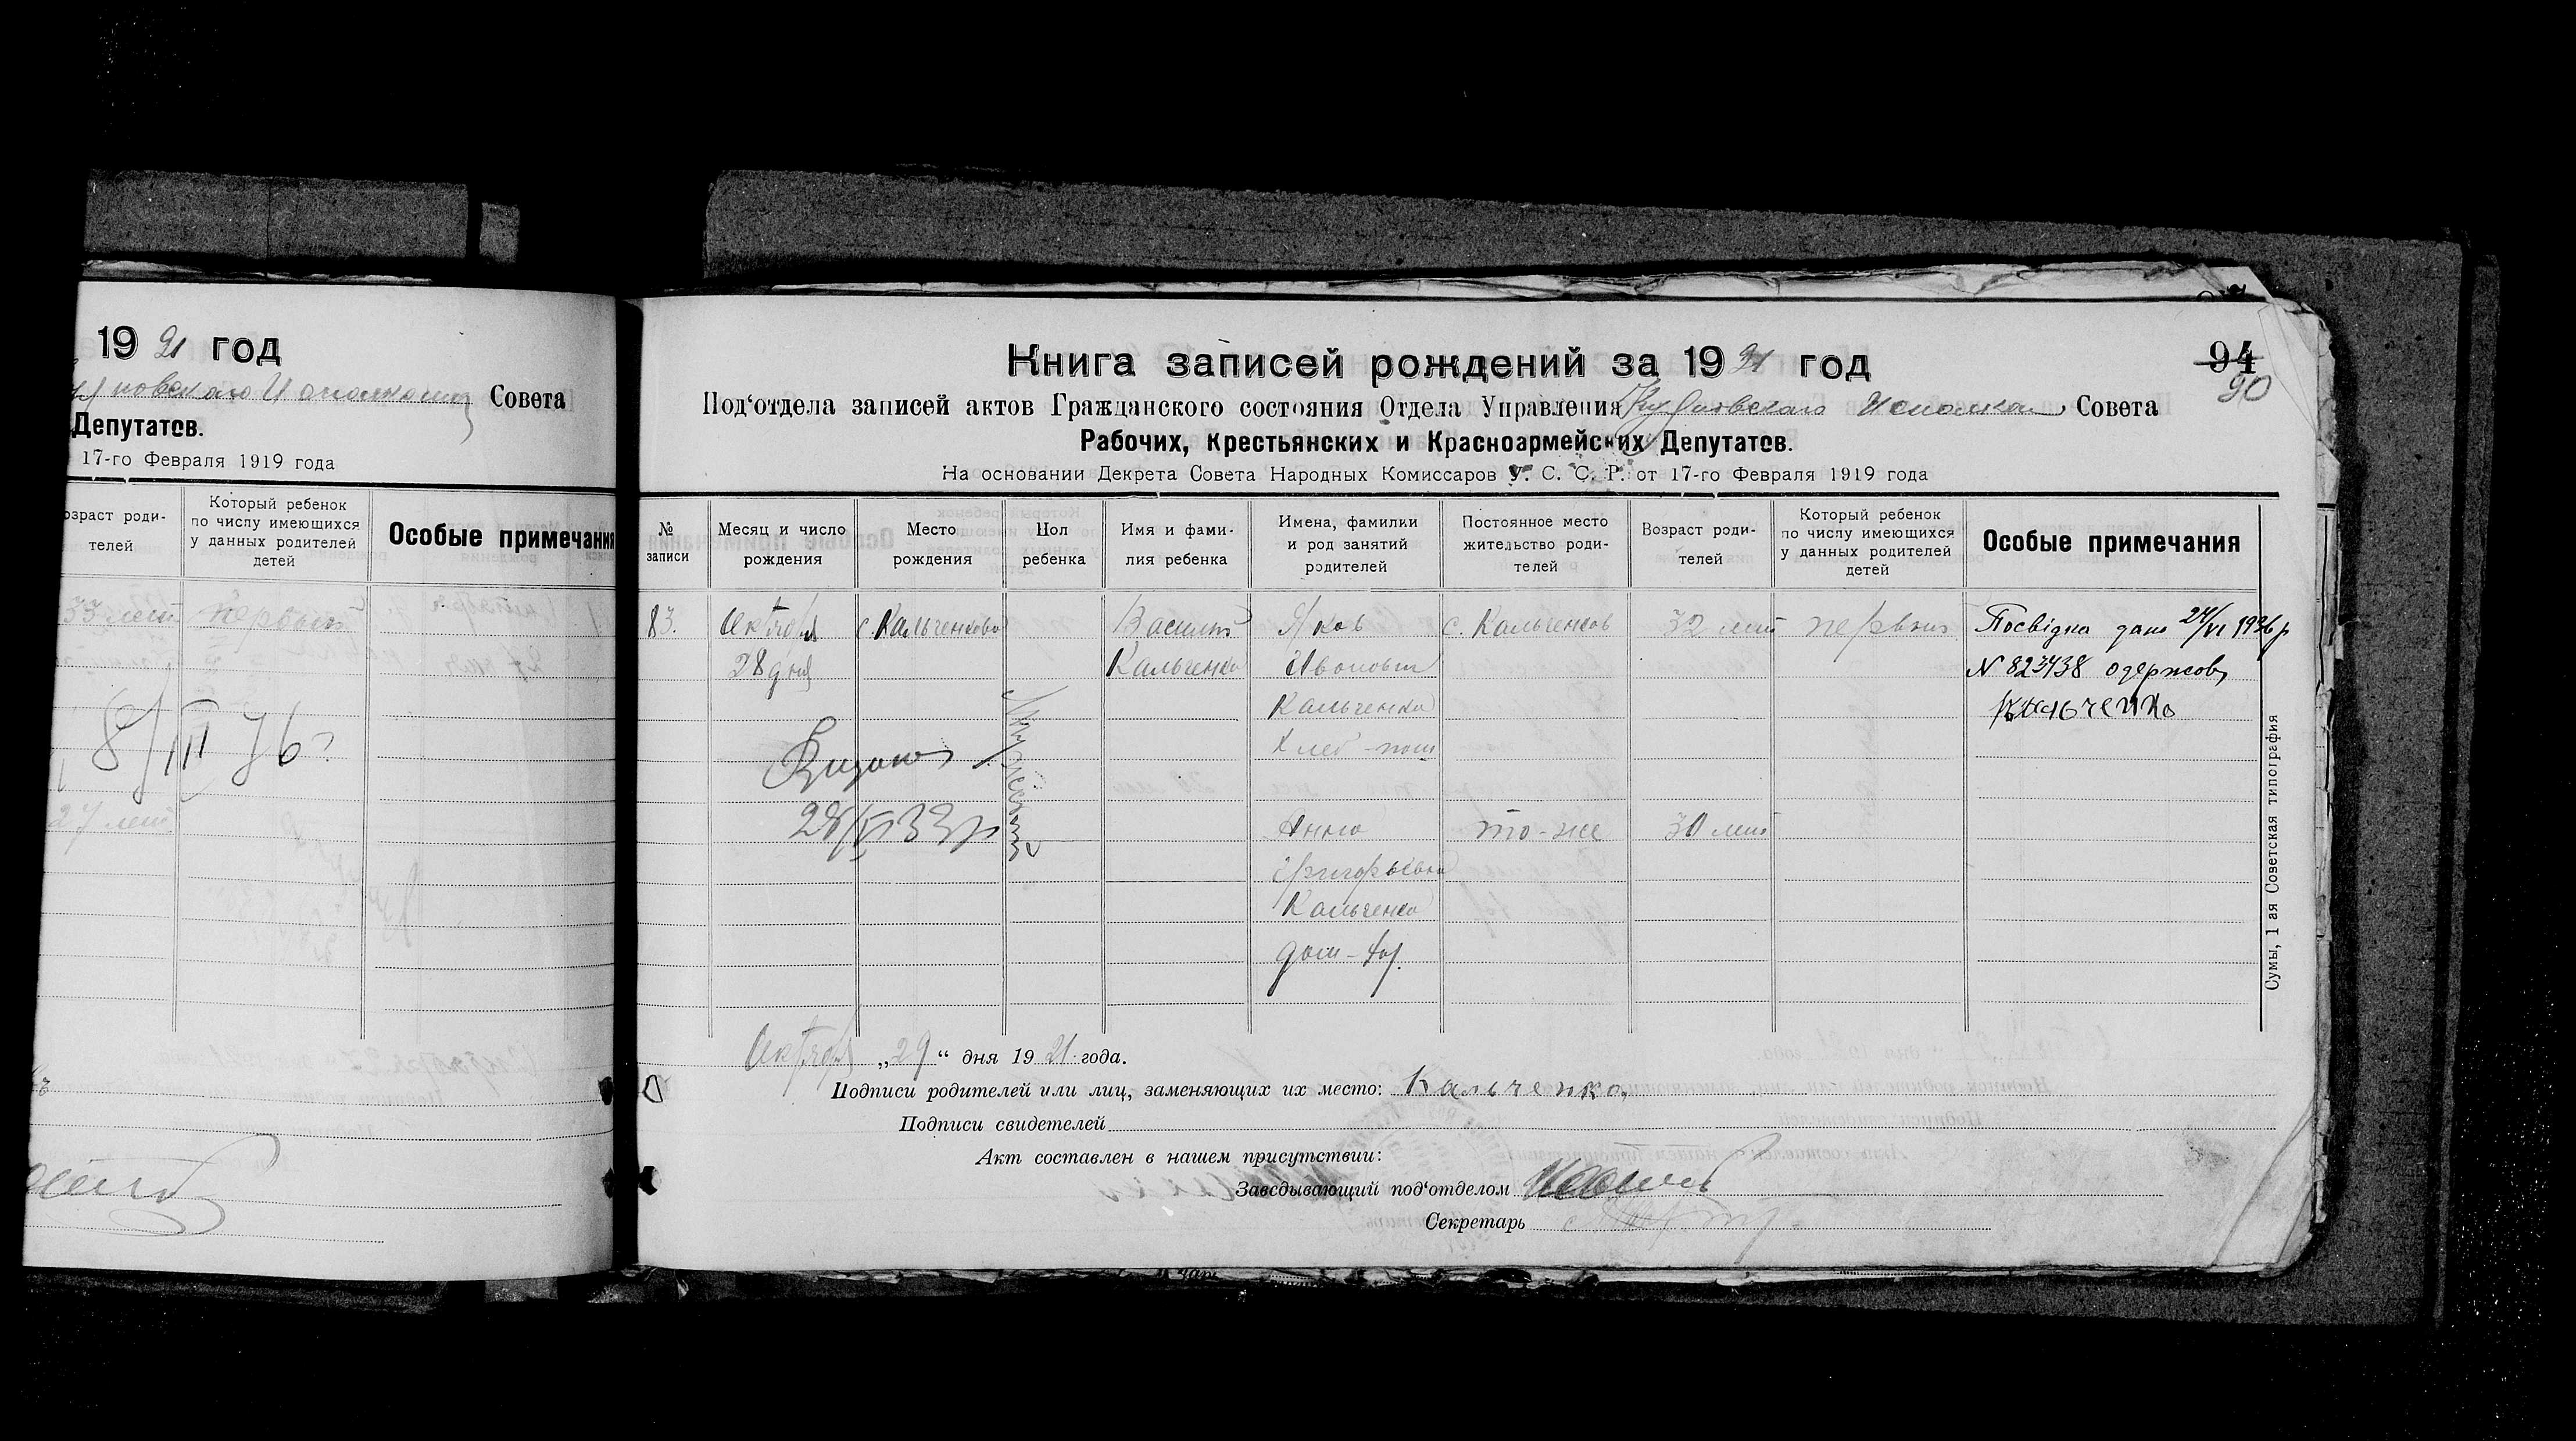 19 21 год
Совета
Депутатов.
17-го Февраля 1919 года
озраст роди-
телей
Который ребенок
по числу имеющихся
у данных родителей
детей
Особые примечания
33 лет первый
8/III 76
27 лет
94
90
Книга записей рождений за 1921 год
Под‘отдела записей актов Гражданского состояния Отдела Управления Исполкома Совета
Рабочих, Крестьянских и Красноармейских Депутатов.
На основании Декрета Совета Народных Комиссаров У. С. С. Р. от 17-го Февраля 1919 года
№
записи
Месяц и число
рождения
Место
рождения
Пол
ребенка
Имя и фами-
лия ребенка
Имена, фамилии
и род занятий
родителей
Постоянное место
жительство роди-
телей
Возраст роди-
телей
Который ребенок
по числу имеющихся
у данных родителей
детей
Особые примечания
83. Октября с. Кальченково Василий Яков с. Кальченков 32 лет первый Посвідка дана 24/VI 1936 р
28 дня Кальченко Иванович N 823438 одержов
Кальченко Кальченко
Хлеб-пош
Мужеский
28/VI 33 р
Анна то-же 30 лет
Григорьевна
Кальченко
дом-хоз.
Октября „29“ дня 1921 года.
Подписи родителей или лиц, заменяющих их место: Кальченко,
Подписи свидетелей
Акт составлен в нашем присутствии:
Заведывающий под‘отделом
Секретарь
Сумы, 1 ая Советская типография